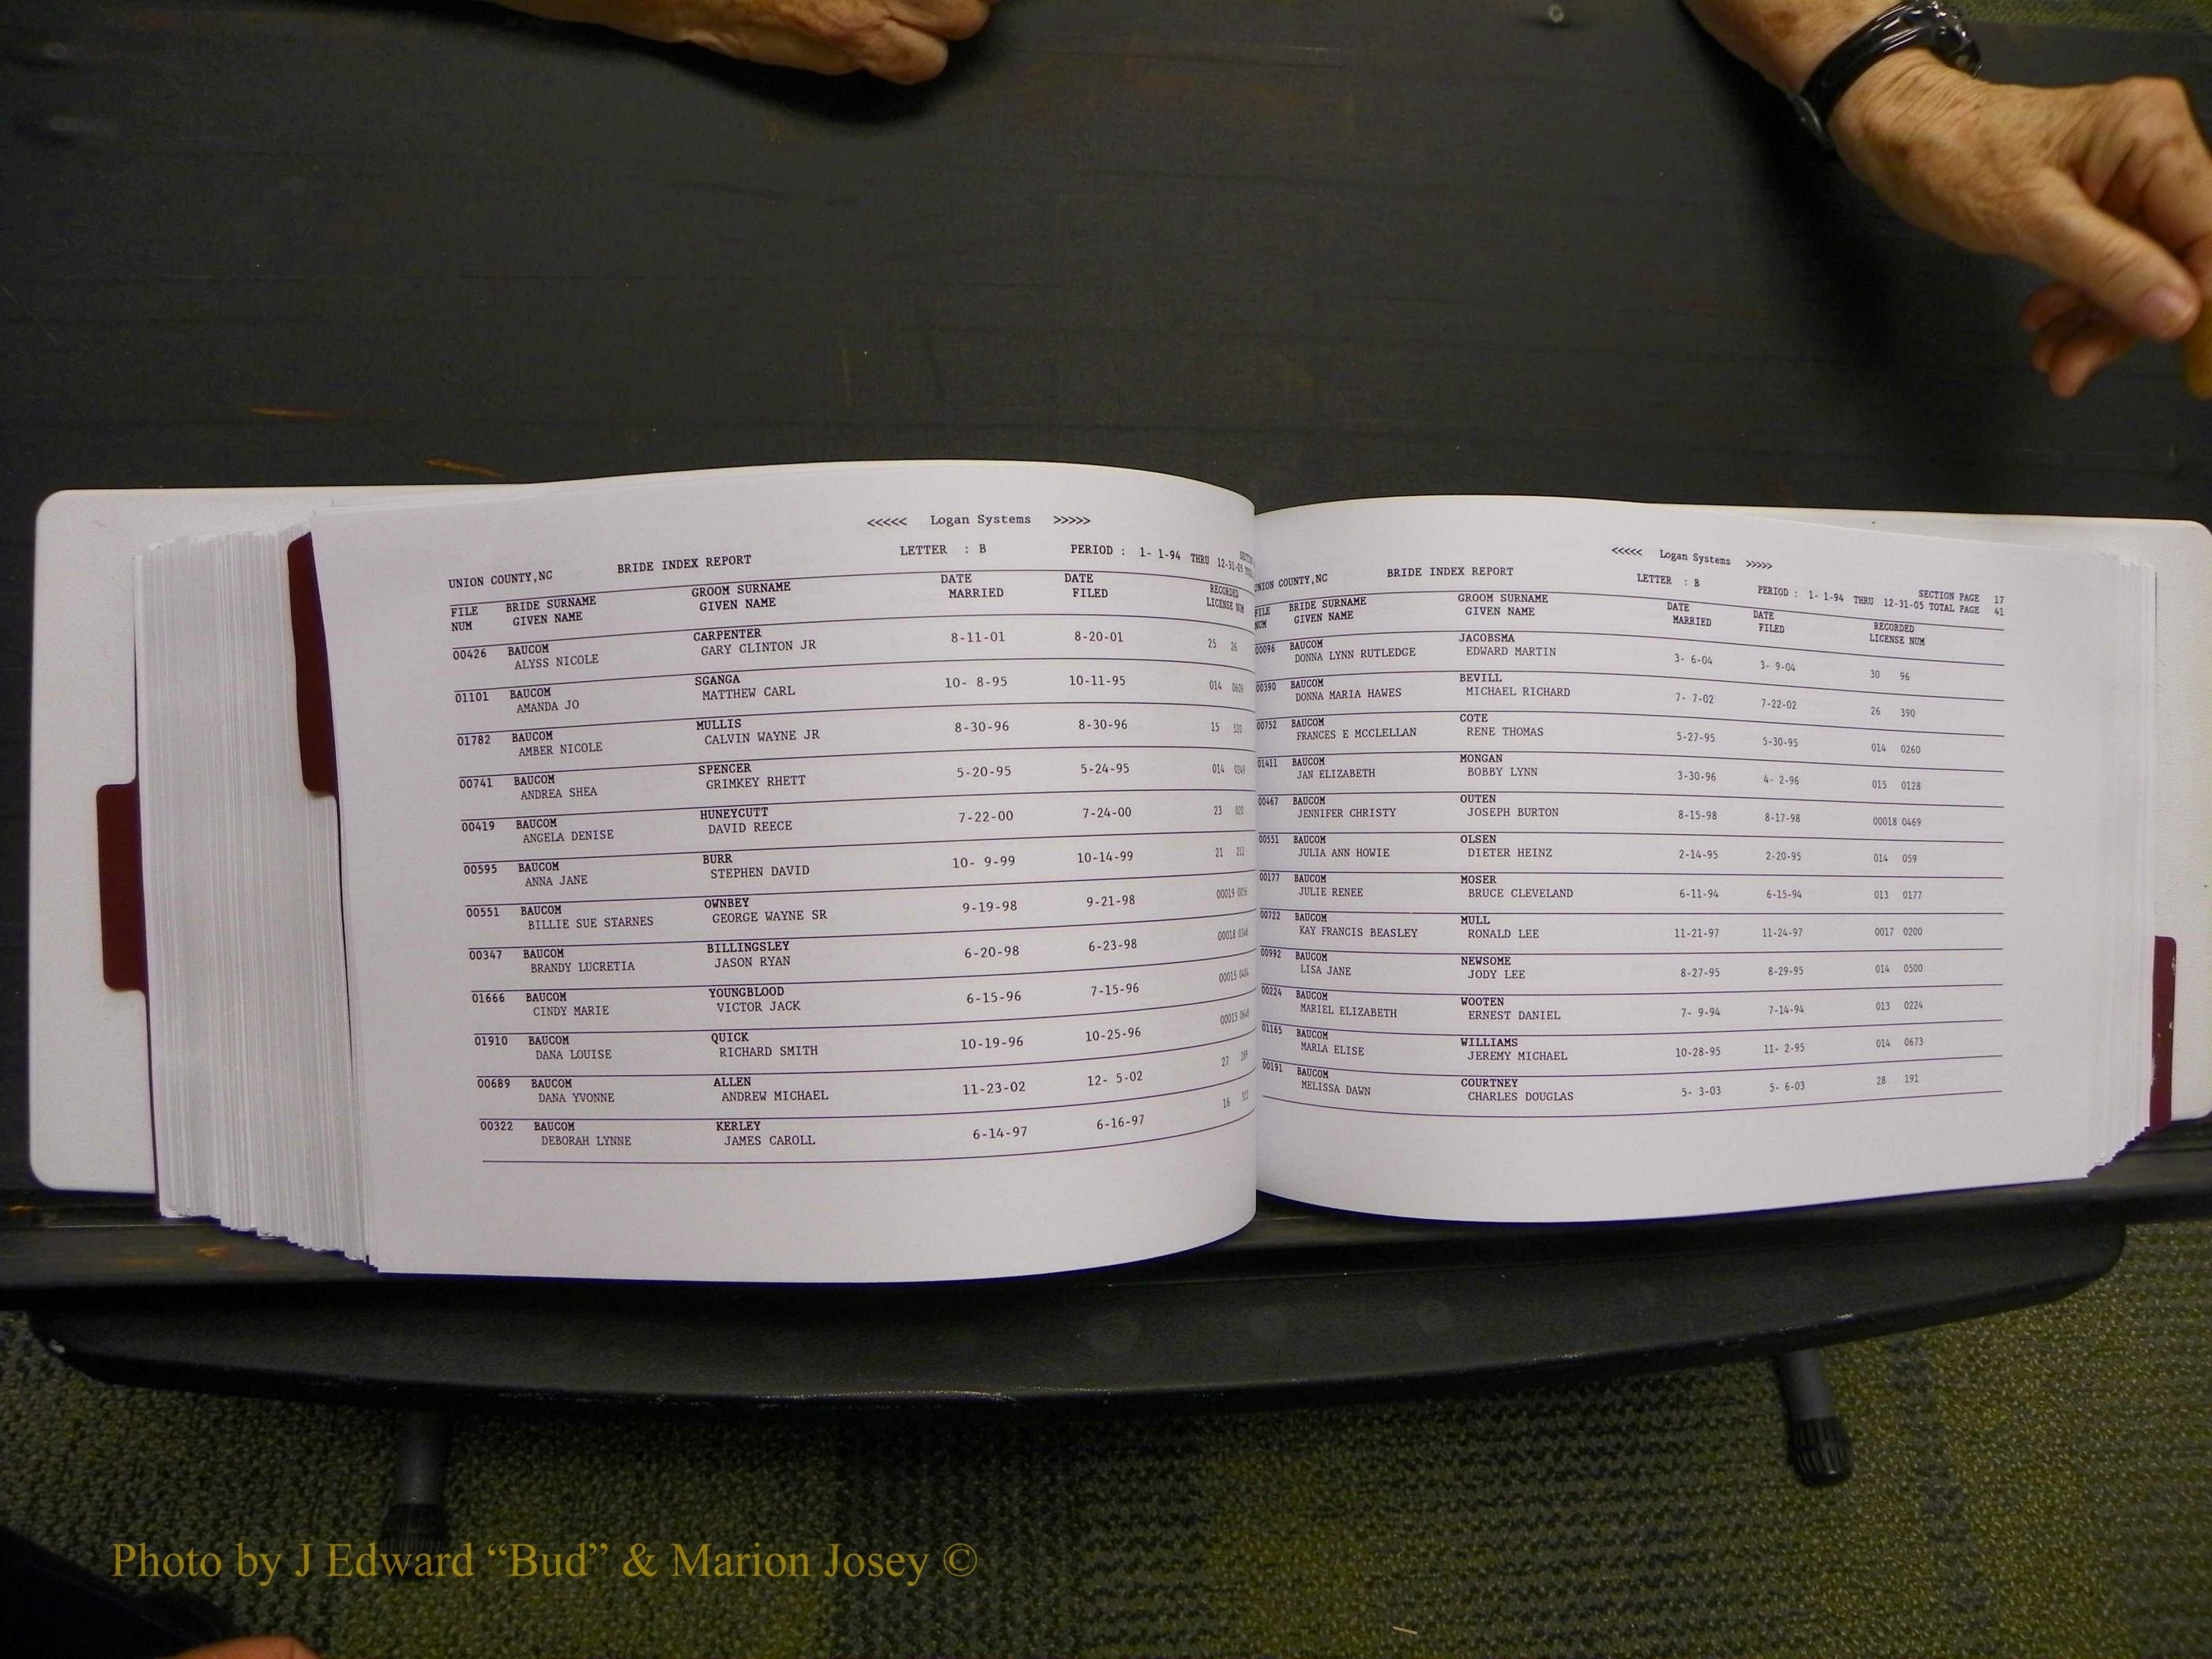 <<<<< Logan Systems >>>>>
UNION COUNTY,NC BRIDE INDEX REPORT LETTER : B PERIOD : 1- 1-94 THRU 12-31-05
FILE BRIDE SURNAME GROOM SURNAME DATE DATE RECORDED
NUM GIVEN NAME GIVEN NAME MARRIED FILED LICENSE NUM
00426 BAUCOM CARPENTER 8-11-01 8-20-01 25 26
ALYSS NICOLE GARY CLINTON JR
01101 BAUCOM SGANGA 10- 8-95 10-11-95 014
AMANDA JO MATTHEW CARL
01782 BAUCOM MULLIS 8-30-96 8-30-96 15
AMBER NICOLE CALVIN WAYNE JR
00741 BAUCOM SPENCER 5-20-95 5-24-95 014
ANDREA SHEA GRIMKEY RHETT
00419 BAUCOM HUNEYCUTT 7-22-00 7-24-00 23
ANGELA DENISE DAVID REECE
00595 BAUCOM BURR 10- 9-99 10-14-99 21
ANNA JANE STEPHEN DAVID
00551 BAUCOM OWNBEY 9-19-98 9-21-98 00019
BILLIE SUE STARNES GEORGE WAYNE SR
00347 BAUCOM BILLINGSLEY 6-20-98 6-23-98 00018
BRANDY LUCRETIA JASON RYAN
01666 BAUCOM YOUNGBLOOD 6-15-96 7-15-96 00015
CINDY MARIE VICTOR JACK
01910 BAUCOM QUICK 10-19-96 10-25-96 00015
DANA LOUISE RICHARD SMITH
00689 BAUCOM ALLEN 11-23-02 12- 5-02 27
DANA YVONNE ANDREW MICHAEL
00322 BAUCOM KERLEY 6-14-97 6-16-97 16
DEBORAH LYNNE JAMES CAROLL
<<<<< Logan Systems >>>>>
UNION COUNTY,NC BRIDE INDEX REPORT LETTER : B SECTION PAGE 17
PERIOD : 1- 1-94 THRU 12-31-05 TOTAL PAGE 41
FILE BRIDE SURNAME GROOM SURNAME DATE DATE RECORDED
NUM GIVEN NAME GIVEN NAME MARRIED FILED LICENSE NUM
00096 BAUCOM JACOBSMA 3- 6-04 3- 9-04 30 96
DONNA LYNN RUTLEDGE EDWARD MARTIN
00390 BAUCOM BEVILL 7- 7-02 7-22-02 26 390
DONNA MARIA HAWES MICHAEL RICHARD
00752 BAUCOM COTE 5-27-95 5-30-95 014 0260
FRANCES E MCCLELLAN RENE THOMAS
01411 BAUCOM MONGAN 3-30-96 4- 2-96 015 0128
JAN ELIZABETH BOBBY LYNN
00467 BAUCOM OUTEN 8-15-98 8-17-98 00018 0469
JENNIFER CHRISTY JOSEPH BURTON
00551 BAUCOM OLSEN 2-14-95 2-20-95 014 059
JULIA ANN HOWIE DIETER HEINZ
00177 BAUCOM MOSER 6-11-94 6-15-94 013 0177
JULIE RENEE BRUCE CLEVELAND
00722 BAUCOM MULL 11-21-97 11-24-97 0017 0200
KAY FRANCIS BEASLEY RONALD LEE
00992 BAUCOM NEWSOME 8-27-95 8-29-95 014 0500
LISA JANE JODY LEE
00224 BAUCOM WOOTEN 7- 9-94 7-14-94 013 0224
MARIEL ELIZABETH ERNEST DANIEL
01165 BAUCOM WILLIAMS 10-28-95 11- 2-95 014 0673
MARLA ELISE JEREMY MICHAEL
00191 BAUCOM COURTNEY 5- 3-03 5- 6-03 28 191
MELISSA DAWN CHARLES DOUGLAS
Photo by J Edward “Bud” & Marion Josey ©